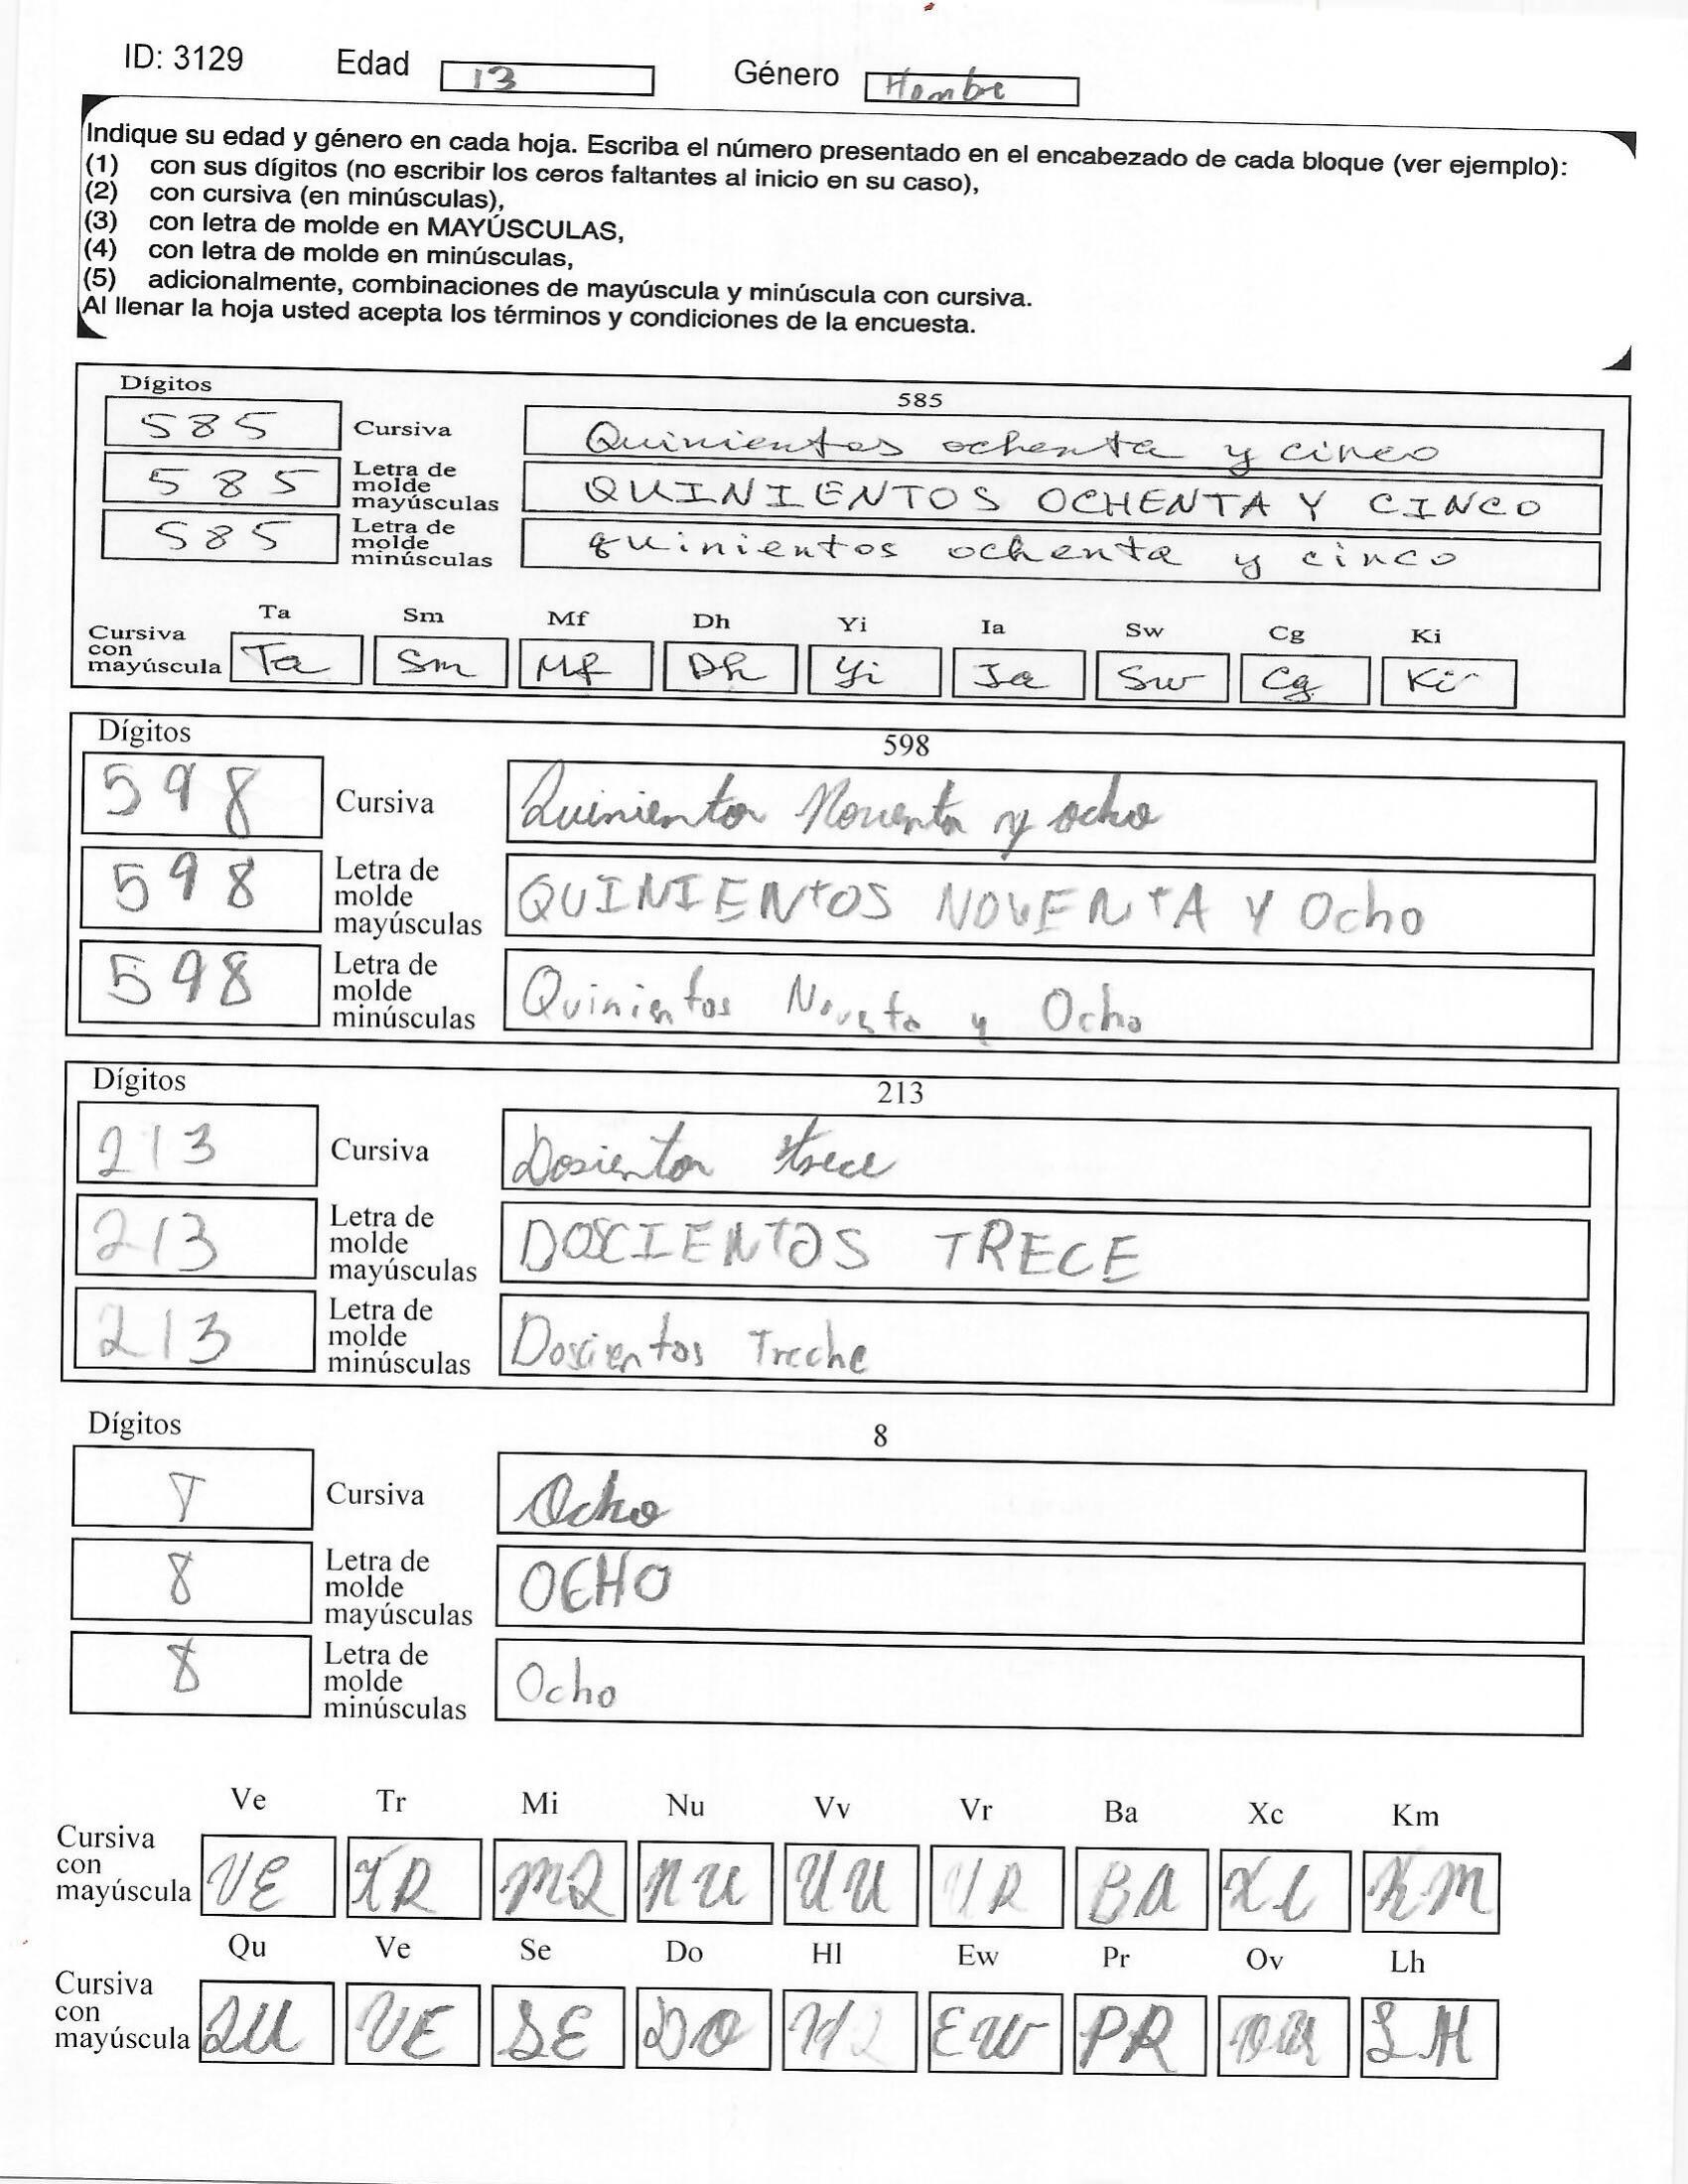 ID: 3129 Edad 13 Género Hombe
Indique su edad y género en cada hoja. Escriba el número presentado en el encabezado de cada bloque (ver ejemplo):
(1) con sus dígitos (no escribir los ceros faltantes al inicio en su caso),
(2) con cursiva (en minúsculas),
(3) con letra de molde en MAYÚSCULAS,
(4) con letra de molde en minúsculas,
(5) adicionalmente, combinaciones de mayúscula y minúscula con cursiva.
Al llenar la hoja usted acepta los términos y condiciones de la encuesta.
Dígitos 585
585 Cursiva Quinientos ochenta y cinco
585 Letra de molde mayúsculas QUINIENTOS OCHENTA Y CINCO
585 Letra de molde minúsculas quinientos ochenta y cinco
Ta Sm Mf Dh Yi Ia Sw Cg Ki
Cursiva con mayúscula Ta Sm Mf Dh Yi Ia Sw Cg Ki
Dígitos 598
598 Cursiva Quinientos Noventa y ocho
598 Letra de molde mayúsculas QUINIENtOS NOVENtA Y Ocho
598 Letra de molde minúsculas Quinientos Noventa y Ocho
Dígitos 213
213 Cursiva Dosientos trece
213 Letra de molde mayúsculas DOSCIENTOS TRECE
213 Letra de molde minúsculas Doscientos Treche
Dígitos 8
8 Cursiva Ocho
8 Letra de molde mayúsculas OCHO
8 Letra de molde minúsculas Ocho
Ve Tr Mi Nu Vv Vr Ba Xc Km
Cursiva con mayúscula VE TR MI NU VV VR BA XC KM
Qu Ve Se Do Hl Ew Pr Ov Lh
Cursiva con mayúscula QU VE SE DO HL EW PR OV LH